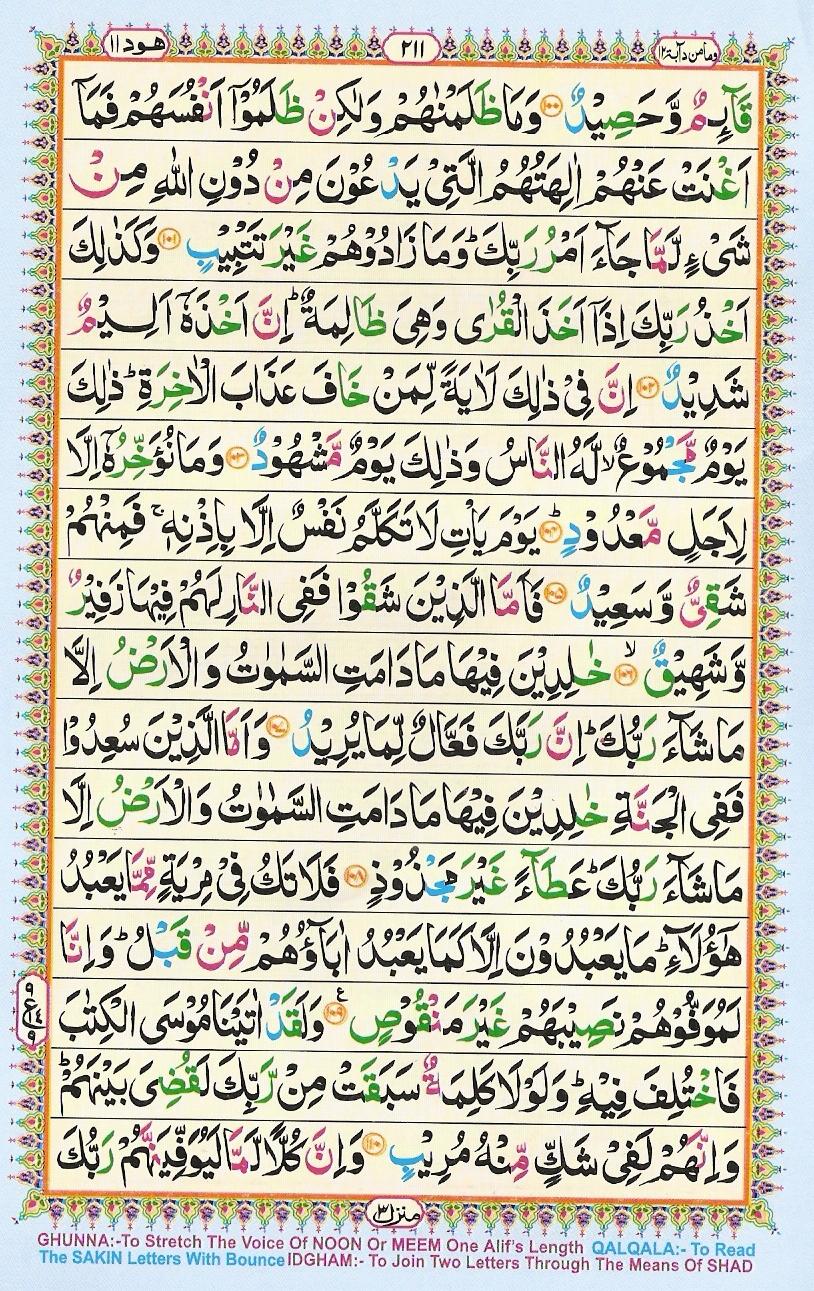 وما من دآبة ١٢
٢١١
هود ١١
قَآئِمٌ وَّحَصِيْدٌ ﴿١٠٠﴾ وَمَا ظَلَمْنٰهُمْ وَلٰكِنْ ظَلَمُوْٓا اَنْفُسَهُمْ فَمَآ
اَغْنَتْ عَنْهُمْ اٰلِهَتُهُمُ الَّتِيْ يَدْعُوْنَ مِنْ دُوْنِ اللّٰهِ مِنْ
شَيْءٍ لَّمَّا جَآءَ اَمْرُ رَبِّكَ ؕ وَمَا زَادُوْهُمْ غَيْرَ تَتْبِيْبٍ ﴿١٠١﴾ وَكَذٰلِكَ
اَخْذُ رَبِّكَ اِذَآ اَخَذَ الْقُرٰى وَهِيَ ظَالِمَةٌ ؕ اِنَّ اَخْذَهٗٓ اَلِيْمٌ
شَدِيْدٌ ﴿١٠٢﴾ اِنَّ فِيْ ذٰلِكَ لَاٰيَةً لِّمَنْ خَافَ عَذَابَ الْاٰخِرَةِ ؕ ذٰلِكَ
يَوْمٌ مَّجْمُوْعٌ ۙ لَّهُ النَّاسُ وَذٰلِكَ يَوْمٌ مَّشْهُوْدٌ ﴿١٠٣﴾ وَمَا نُؤَخِّرُهٗٓ اِلَّا
لِاَجَلٍ مَّعْدُوْدٍ ﴿١٠٤﴾ؕ يَوْمَ يَاْتِ لَا تَكَلَّمُ نَفْسٌ اِلَّا بِاِذْنِهٖ ۚ فَمِنْهُمْ
شَقِيٌّ وَّسَعِيْدٌ ﴿١٠٥﴾ فَاَمَّا الَّذِيْنَ شَقُوْا فَفِى النَّارِ لَهُمْ فِيْهَا زَفِيْرٌ
وَّشَهِيْقٌ ﴿١٠٦﴾ۙ خٰلِدِيْنَ فِيْهَا مَا دَامَتِ السَّمٰوٰتُ وَالْاَرْضُ اِلَّا
مَا شَآءَ رَبُّكَ ؕ اِنَّ رَبَّكَ فَعَّالٌ لِّمَا يُرِيْدُ ﴿١٠٧﴾ وَاَمَّا الَّذِيْنَ سُعِدُوْا
فَفِى الْجَنَّةِ خٰلِدِيْنَ فِيْهَا مَا دَامَتِ السَّمٰوٰتُ وَالْاَرْضُ اِلَّا
مَا شَآءَ رَبُّكَ ؕ عَطَآءً غَيْرَ مَجْذُوْذٍ ﴿١٠٨﴾ فَلَا تَكُ فِيْ مِرْيَةٍ مِّمَّا يَعْبُدُ
هٰٓؤُلَآءِ ؕ مَا يَعْبُدُوْنَ اِلَّا كَمَا يَعْبُدُ اٰبَآؤُهُمْ مِّنْ قَبْلُ ؕ وَاِنَّا
لَمُوَفُّوْهُمْ نَصِيْبَهُمْ غَيْرَ مَنْقُوْصٍ ﴿١٠٩﴾ ع وَلَقَدْ اٰتَيْنَا مُوْسَى الْكِتٰبَ
فَاخْتُلِفَ فِيْهِ ؕ وَلَوْلَا كَلِمَةٌ سَبَقَتْ مِنْ رَّبِّكَ لَقُضِيَ بَيْنَهُمْ ؕ
وَاِنَّهُمْ لَفِيْ شَكٍّ مِّنْهُ مُرِيْبٍ ﴿١١٠﴾ وَاِنَّ كُلًّا لَّمَّا لَيُوَفِّيَنَّهُمْ رَبُّكَ
٩
ع ١٤
٩
منزل ٣
GHUNNA:-To Stretch The Voice Of NOON Or MEEM One Alif's Length QALQALA:- To Read
The SAKIN Letters With Bounce IDGHAM:- To Join Two Letters Through The Means Of SHAD